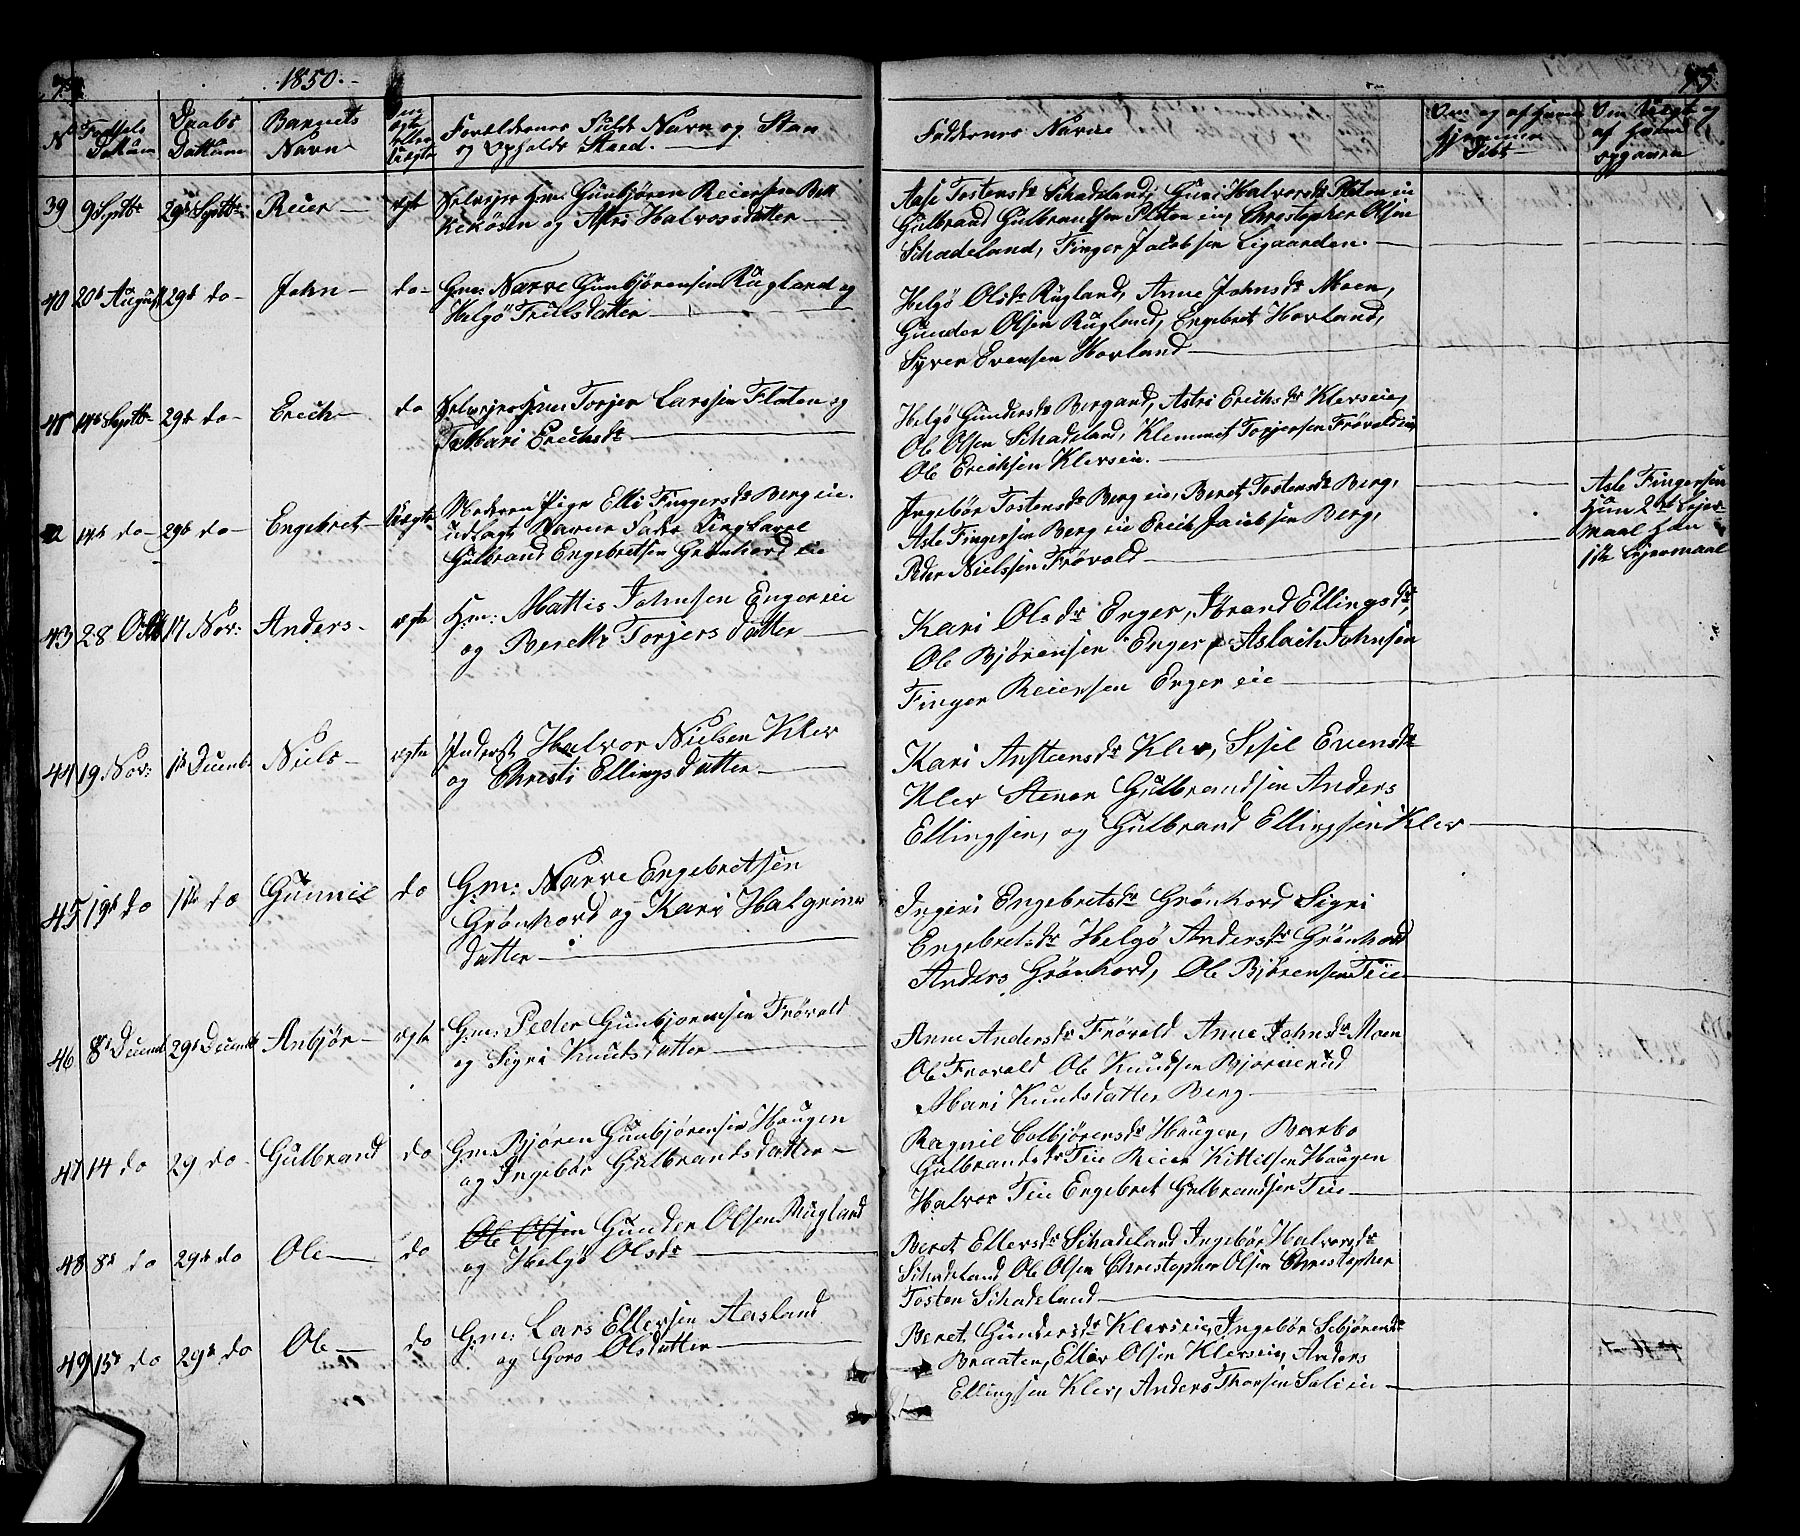 1850.
45.
No Fødsels Dattum
Daabs Dattum
Barnets Navn
Om ægte eller Uægte
Forældrenes Fulde Navn og Stan
og Opholds Stæd.
Faddernes Navne
Om og af hvem hjemme Døbt
Om Uægt og af hvem
39 9 Septbr 29d Septbr Reier ægt Selvejer Gm: Gunbjören Reiersen
og Astri Halvorsdatter
Aase Tostensdr Schadeland, Guri Halvorsdr Floten eie
Gulbrand Gulbrandsen Floten eie, Christopher Olsen
Schadeland, Finger Jacobsen Ligaarden.
40 20d August 29d do John do Gm: Narve Gunbjörensen Rugland og
Helgö Trulsdatter
Helgö Olsdr Rugland, Anne Johnsdr Moen,
Gunder Olsen Rugland, Engebret Hovland,
Syver Evensen Hovland
14d Septbr 29d do Erich do Selvejer Gm: Torjer Larssen Floten og
Mari Erichsdr
Helgö Gundersdr Bergand, Astri Erichsdr Klevseie,
Ole Olsen Schadeland, Klemmet Torjersen Frövold eie
Ole Erichsen Klevseie.
14d do 29d do Engebret Uægte Moderen Pige Elli Fingersdr Berg eie.
udlagt Barne Fader Ungkarl
Gulbrand Engebretsen Grönhovd eie
Ingebör Tostensdr Berg eie, Beret Tostensdr Berg,
Asle Fingersen Berg eie Erich Jacobsen Berg,
Peder Nielssen Frövold
Asle Fingersen
Hun 2det Lejer-
maal Han
1te Lejermaal
43 28 Oct 17 Nov: Anders ægte Hm: Mattis Johnsen Enger eie
og Berethe Torjersdatter
Kari Olsdr Enger, Jörand Ellingsdr,
Ole Björensen Enger, Aslach Johnsen
Finger Reiersen Enger eie
44 19 Nov: 1te Decemb Niels ægte Inderst Halvor Nielsen Klev
og Christi Ellingsdatter
Kari Anstensdr Klev, Sesil Evensdr
Klev Stener Gulbrandsen Anders
Ellingsen, og Gulbrand Ellingsen Klev
45 19d do 1te do Gunnil do Gm: Narve Engebretsen
Grönhovd og Kari Halgrims
datter
Ingeri Engebretsdr Grönhovd Sigri
Engebretsdr Helgö Andersdr Grönhovd
Anders Grönhovd, Ole Björensen Tiie
46 8d Decemb 29d Decemb Anbjör ægte Gm: Peder Gunbjorensen Frövold
og Sigri Knudsdatter
Anne Andersdr Frövold Anne Johnsdr Moen
Ole Frovold Ole Knudsen Bjornerud
Mari Knudsdatter Berg
47 14 do 29 do Gulbrand do Gm: Björen Gunbjörensen Haugen
og Ingebör Gulbrandsdatter
Ragnil Colbjörensdr Haugen, Barbo
Gulbrandsdr Tiie Reier Kittelsen Haugen
Halvor Tiie Engebret Gulbrandsen Tiie
48 8d do 29d do Ole do Ole Olsen Gunder Olsen Rugland
og Helgö Olsdr
Beret Ellevsdr Schadeland Ingebör Halvorsdr
Schadeland Ole Olsen Christopher Olsen Christopher
Tosten Schadeland
49 15d do 29d do Ole do Gm: Lars Ellevsen Aasland
og Goro Olsdatter
Beret Gundersdr Klevseie, Ingebör Sebjörensdr
Braaten, Ellev Olsen Klevseie, Anders
Ellingsen Klev, Anders Thorsen Solieie